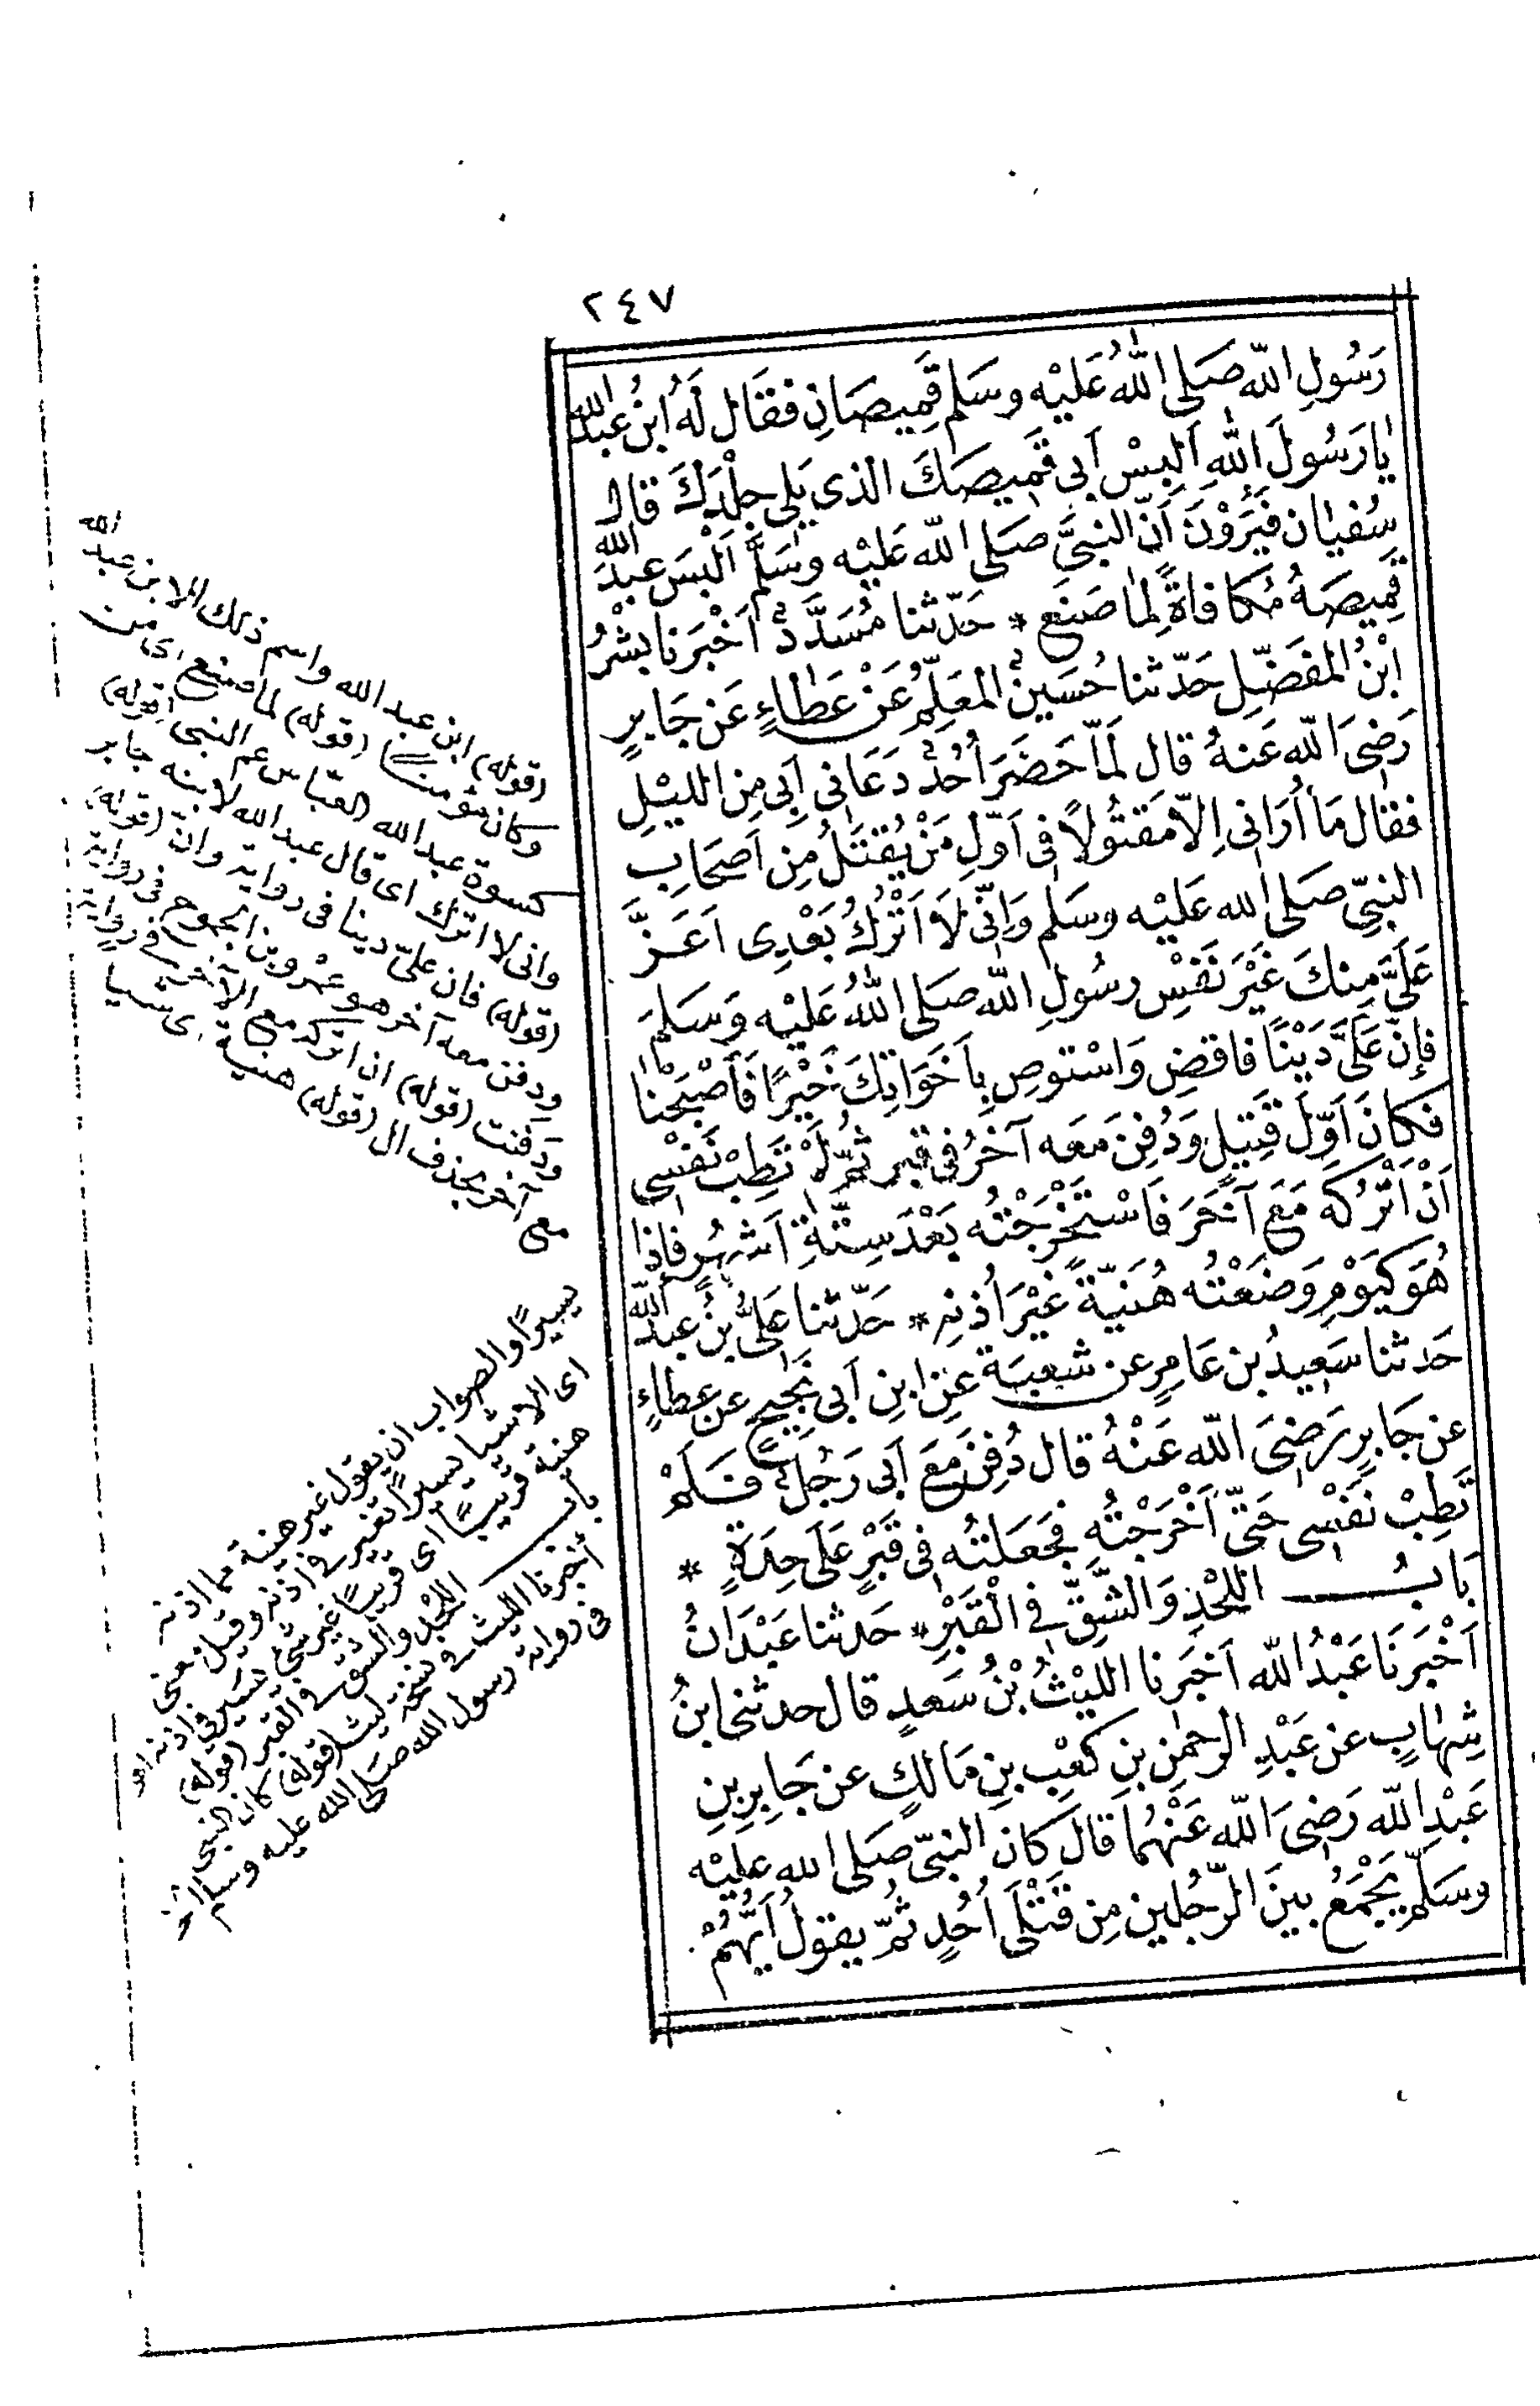 ٢٤٧
رَسُولِ اللّه صَلى اللّٰهُ عَلَيْه وسَلم قَمِيصَانِ فقَال لَهُ ابْنُ عبدُ الله
يٰا رَسُولَ اللّٰهِ اَلبِسْ اَبى قَمِيصَكَ الذى يَلى جِلْدَكَ قال
سُفيٰان فَيَرَوْنَ اَنّ النبِىَّ صَلى اللّه عَليْه وسَلَّم اَلْبَسَ عبدَ الله
قَمِيصَهُ مُكافاةً لِمٰا صَنَع * حَدّثنا مُسَدَّدٌ اَخْبَرَنا بِشْرُ
ابْنُ المفَضّلِ حَدّثنا حُسَينٌ المعَلِّمُ عَنْ عَطٰاءٍ عَن جَابرٍ
رَضىَ اللّه عَنهُ قال لَمّا حَضَرَ أُحُدٌ دَعَانى اَبى مِنَ الليْلِ
فقال مَا أُرَانى اِلّا مَقتُولاً فى اَوّلِ مَنْ يُقتَلُ مِن اَصحَابِ
النبِىّ صَلى الله عَليْه وسَلم وَاِنّى لَا اَتْرُكُ بَعْدِى اَعَزَّ
عَلَىَّ مِنكَ غَيْرَ نَفَسْ رسُولِ اللّه صَلى اللّٰهُ عَليْه وَسَلمَ
فاِنّ عَلَىَّ دَيْنًا فاقضِ وَاسْتوصِ بِاَخَوَاتِكَ خَيْرًا فَاَصْبَحْنٰا
فكانَ اَوّلَ قَتِيلٍ وَدُفِنَ مَعَه آخَرُ فى قبر ثمّ لَمْ تَطِبْ نَفسى
اَنْ اَتْرُكه مَعَ آخَرَ فَاسْتَخْرَجْتُه بَعْدَ سِتّةِ اَشهُرٍ فاِذا
هُوَ كيَوْمِ وَضَعْتُه هُنَيّةً غَيْرَ اُذنِه * حَدّثنا عَلىُّ بنُ عبدِ اللّه
حَدثنا سَعِيدُ بن عَامِرٍ عن شعبَة عَنِ ابنِ اَبى نَجِيحٍ عن عطاءٍ
عن جَابِرٍ رَضىَ اللّه عَنْهُ قال دُفِنَ مَعَ اَبى رَجُلٌ فَلَمْ
تَطِبْ نَفسى حَتّى اَخْرَجْتُه فجَعَلتُه فى قَبْرٍ عَلَى حِدَةٍ *
بَابُ اللحْدِ وَالشَّقِّ فى الْقَبْرِ * حَدثنا عَبْدَانُ
اَخْبَرَنَا عَبْدُ اللّه اَخبَرنا الليْثُ بْنُ سَعدٍ قال حدثنى ابنُ
شِهابٍ عن عَبْدِ الرحمٰنِ بنِ كعْبِ بنِ مَالكٍ عن جَابِرِ بنِ
عَبْدِ اللّه رَضىَ اللّه عَنْهُما قال كان النبِىّ صَلى الله عليْه
وسَلّم يَجْمَعُ بينَ الرّجُلين مِن قَتْلَى اُحُدٍ ثُمّ يقولُ اَيّهُمْ
(قوله) ابن عبد الله واسم ذلك الابن عبد الله
وكان مؤمنا (قوله) لما صنع اى من
كسوة عبد الله العباس عم النبى (قوله)
وانى لا اترك اى قال عبد الله لابنه جابر
(قوله) فان علىّ دينا فى رواية وانّ (قوله)
ودفن معه آخر هو عمرو بن الجموح فى رواية
ودفنت (قوله) ان اتركه مع الآخر فى رواية
مع آخر بحذف ال (قوله) هنية اى شيا
يسيراً والصواب ان يقول غير هنية مما اذنه
اى الا شيا يسيراً تغير فى اذنه وقيل معنى
هنية قريباً اى قريباً غير شئ يسير فى اذنه اه
باب اللحد والشق فى القبر (قوله)
أخبرنا الليث فى نسخة ليث (قوله) كان النبى
فى رواية رسول الله صَلى الله عليه وسلم الخ